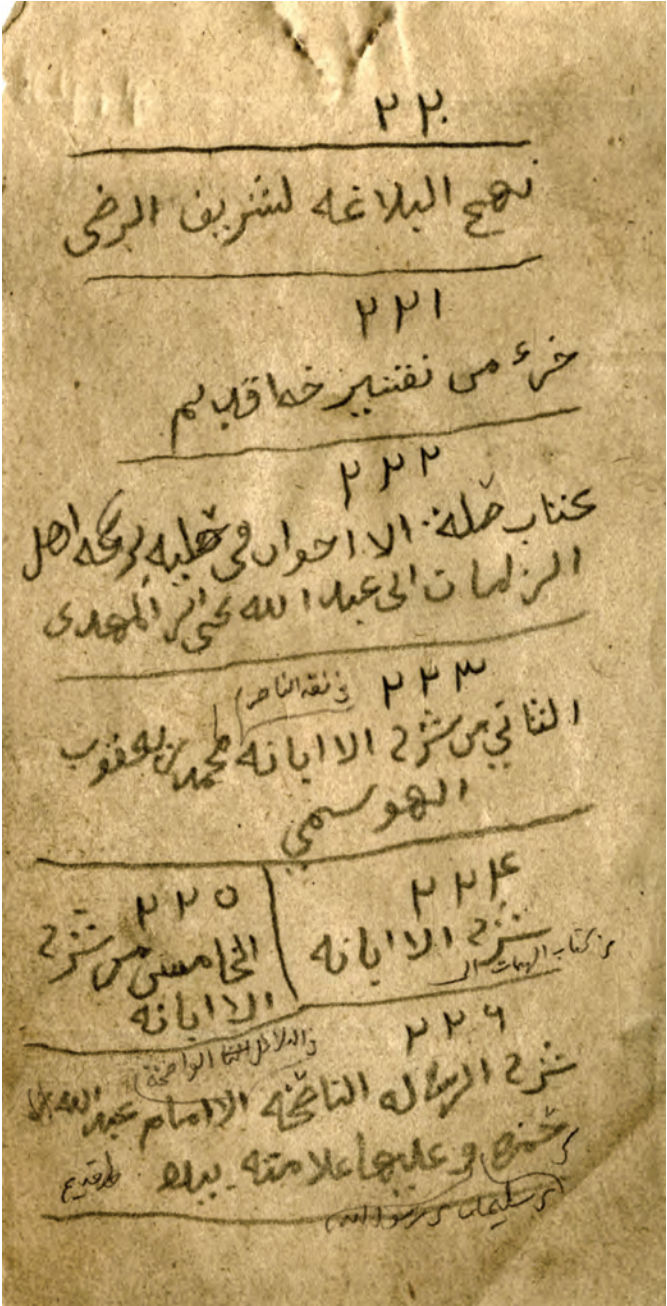 ٢٢٠
نهج البلاغه لشريف الرضى
٢٢١
جزء من تفسير خط قديم
٢٢٢
كتاب صلة الااخوان في حليه بركه اهل
الزمان الى عبد الله يحي المهدى
٢٢٣
في فقه الناصر
الثاني من شرح الاابانه لمحمد بن يعقوب
الهوسمي
٢٢٤
شرح الاابانه
من كتاب
٢٢٥
الخامس من شرح
الاابانه
٢٢٦
الواضحة
شرح الرساله الناصحه الاامام عبد الله
بن حمزه وعليها علامته بيده خط قديم
بن سليمان بن رسول الله